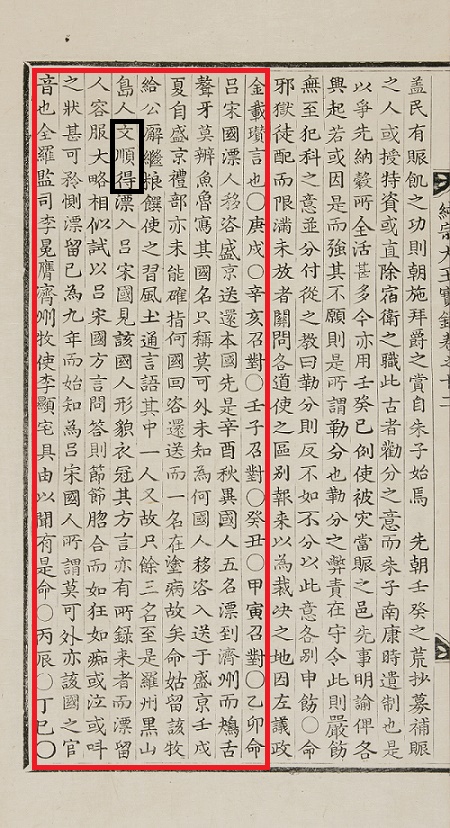 純宗大王實錄卷之十二
蓋民有賑飢之功則朝施拜爵之賞自朱子始焉　先朝壬癸之荒抄募補賑
之人或授特資或直除宿衛之職此古者勸分之意而朱子南康時遺制也是
以爭先納穀所全活甚多今亦用壬癸已例使被灾當賑之邑先事明諭俾各
興起若或因是而強其不願則是所謂勒分也勒分之弊責在守令此則嚴飭
無至犯科之意並分付從之敎曰勒分則反不如不分以此意各別申飭〇命
邪獄徒配而限滿未放者關問各道使之區別報来以為裁决之地因左議政
金載瓚言也〇庚戌〇辛亥召對〇壬子召對〇癸丑〇甲寅召對〇乙卯命
呂宋國漂人移咨盛京送還本國先是辛酉秋異國人五名漂到濟州而鴂舌
聱牙莫辨魚魯寫其國名只稱莫可外未知為何國人移咨入送于盛京壬戌
夏自盛京禮部亦未能確指何國回咨還送而一名在塗病故矣命姑留該牧
給公廨繼粮饌使之習風土通言語其中一人又故只餘三名至是羅州黑山
島人文順得漂入呂宋國見該國人形貌衣冠其方言亦有所錄来者而漂留
人容服大略相似試以呂宋國方言問答則節節脗合而如狂如痴或泣或呌
之狀甚可矜惻漂留已為九年而始知為呂宋國人所謂莫可外亦該國之官
音也全羅監司李冕膺濟州牧使李顯宅具由以聞有是命〇丙辰〇丁巳〇